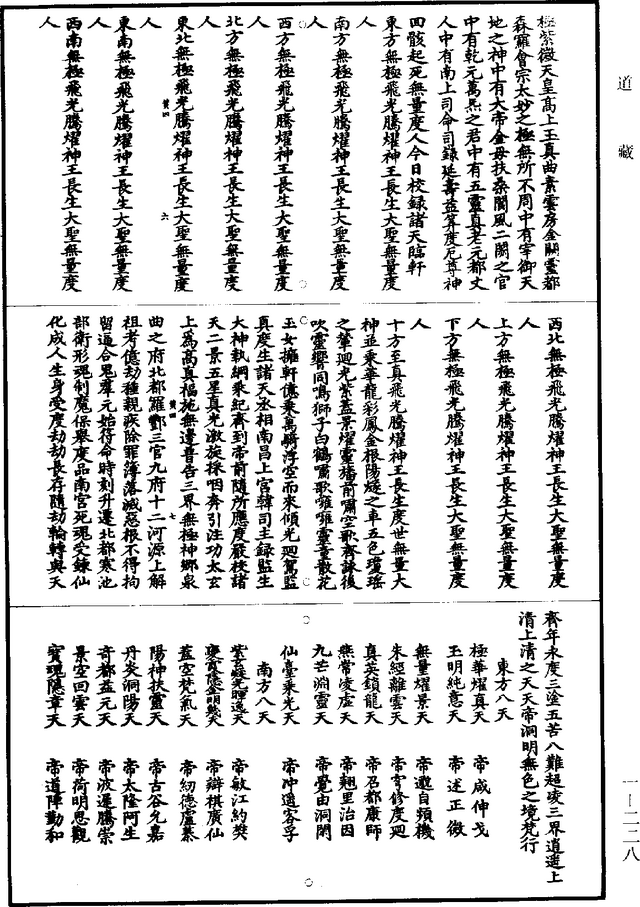 道藏
極紫微天皇高上玉真曲素雲房金闕靈都
森羅會宗太妙之極無所不周中有宰御天
地之神中有大帝金母扶桑閬風二闕之官
中有乾元萬炁之君中有五靈真老元都丈
人中有南上司命司錄延壽益筭度厄尊神
回骸起死無量度人今日校錄諸天臨軒
東方無極飛光騰燿神王長生大聖無量度
人
南方無極飛光騰燿神王長生大聖無量度
人
西方無極飛光騰燿神王長生大聖無量度
人
北方無極飛光騰燿神王長生大聖無量度
人
東北無極飛光騰燿神王長生大聖無量度
人
黄四 六
東南無極飛光騰燿神王長生大聖無量度
人
西南無極飛光騰燿神王長生大聖無量度
人
西北無極飛光騰燿神王長生大聖無量度
人
上方無極飛光騰燿神王長生大聖無量度
人
下方無極飛光騰燿神王長生大聖無量度
人
十方至真飛光騰燿神王長生度世無量大
神並乘華龍彩鳳金根陽燧之車五色瓊瑤
之輦迴光紫蓋景燿靈旛前嘯空歌齊詠後
吹靈響同鳴獅子白鶴嘯歌嗈嗈靈童散花
玉女擁軒億乘萬騎浮空而來傾光迴駕監
真度生諸天丞相南昌上宮韓司主錄監生
大神執綱乘紀齊到帝前隨所應度嚴校諸
天二景五星真光激旋採咽奔引注功太玄
上爲高真福施無邊普告三界無極神鄉泉
黄四 七
曲之府北都羅酆三官九府十二河源上解
祖考億劫種親疾除罪簿落滅惡根不得拘
留逼合鬼羣元始符命時刻升遷北都寒池
部衛形魂制魔保舉度品南宮死魂受鍊仙
化成人生身受度劫劫長存隨劫輪轉與天
齊年永度三塗五苦八難超凌三界逍遙上
清上清之天天帝洞明無色之境梵行
東方八天
極華燿真天 帝咸伸戈
玉明純意天 帝述正微
無量燿景天 帝邀自頻機
朱經離雲天 帝宁修度廻
真英鎖龍天 帝召都康師
無常凌虛天 帝翹里治因
九芒淵靈天 帝覺由洞閑
仙臺乘光天 帝沖遁客孚
南方八天
紫玄巖光輝逸天 帝敏江約樊
帝辯棋廣仙
蓋空梵氣天 帝紉德廬綦
陽神扶靈天 帝古谷允嘉
丹炎洞陽天 帝太隆阿生
奇都益元天 帝波遲騰崇
景空回雲天 帝荷明思觀
寶魂隱章天 帝道陣勤和
一—二二八